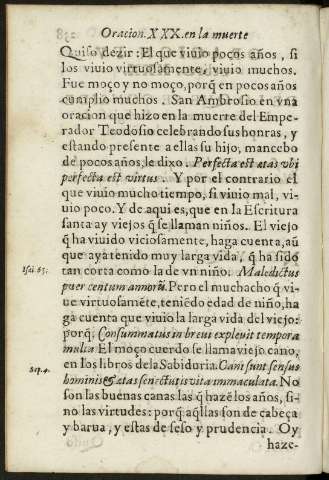 Oracion. XXX. en la muerte
Quiso dezir: El que viuio pocos años, si
los viuio virtuosamente, viuio muchos.
Fue moço y no moço, porq̃ en pocos años
cumplio muchos. San Ambrosio en vna
oracion que hizo en la muerte del Empe-
rador Teodosio celebrando sus honras, y
estando presente a ellas su hijo, mancebo
de pocos años, le dixo. Perfecta est ætas vbi
perfecta est virtus. Y por el contrario el
que viuio mucho tiempo, si viuio mal, vi-
uio poco. Y de aqui es, que en la Escritura
santa ay viejos q̃ se llaman niños. El viejo
q̃ ha viuido viciosamente, haga cuenta, aũ
que aya tenido muy larga vida, q̃ ha sido
Isai. 65. tan corta como la de vn niño. Maledictus
puer centum annorũ. Pero el muchacho q̃ vi-
ue virtuosamẽte, teniẽdo edad de niño, ha
ga cuenta que viuio la larga vida del viejo:
porq̃, Consummatus in breui expleuit tempora
multa. El moço cuerdo se llama viejo cano,
Sap. 4. en los libros de la Sabiduria. Cani sunt sensus
hominis & ætas senectutis vita immaculata. No
son las buenas canas las q̃ hazẽ los años, si-
no las virtudes: porq̃ aq̃llas son de cabeça
y barua, y estas de seso y prudencia. Oy
haze-